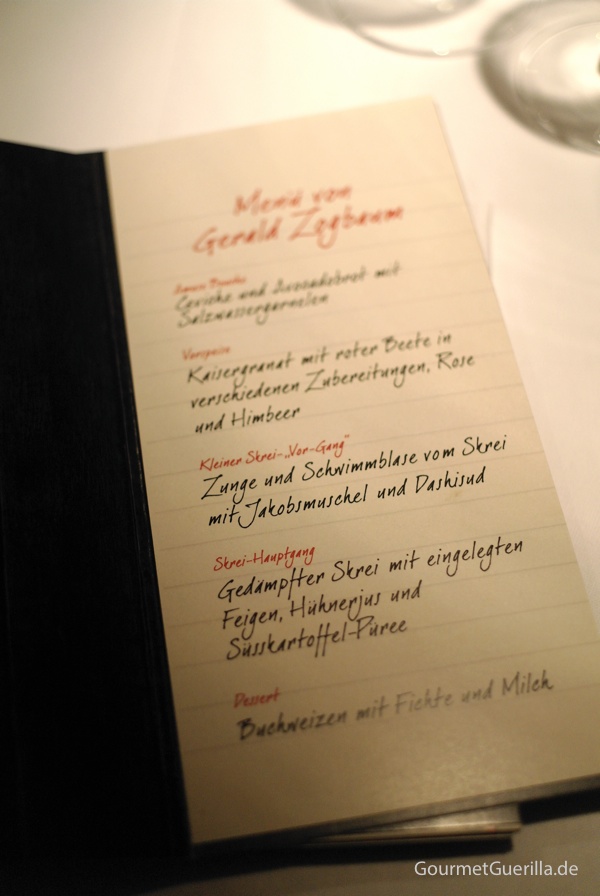 Menü von
Gerald Zogbaum
Ceviche und Avocadobrot mit
Salzwassergarnelen
Vorspeise
Kaisergranat mit roter Beete in
verschiedenen Zubereitungen, Rose
und Himbeer
Kleiner Skrei-„Vor-Gang"
Zunge und Schwimmblase vom Skrei
mit Jakobsmuschel und Dashisud
Skrei-Hauptgang
Gedämpfter Skrei mit eingelegten
Feigen, Hühnerjus und
Süsskartoffel-Püree
Dessert
Buchweizen mit Fichte und Milch
GourmetGuerilla.de